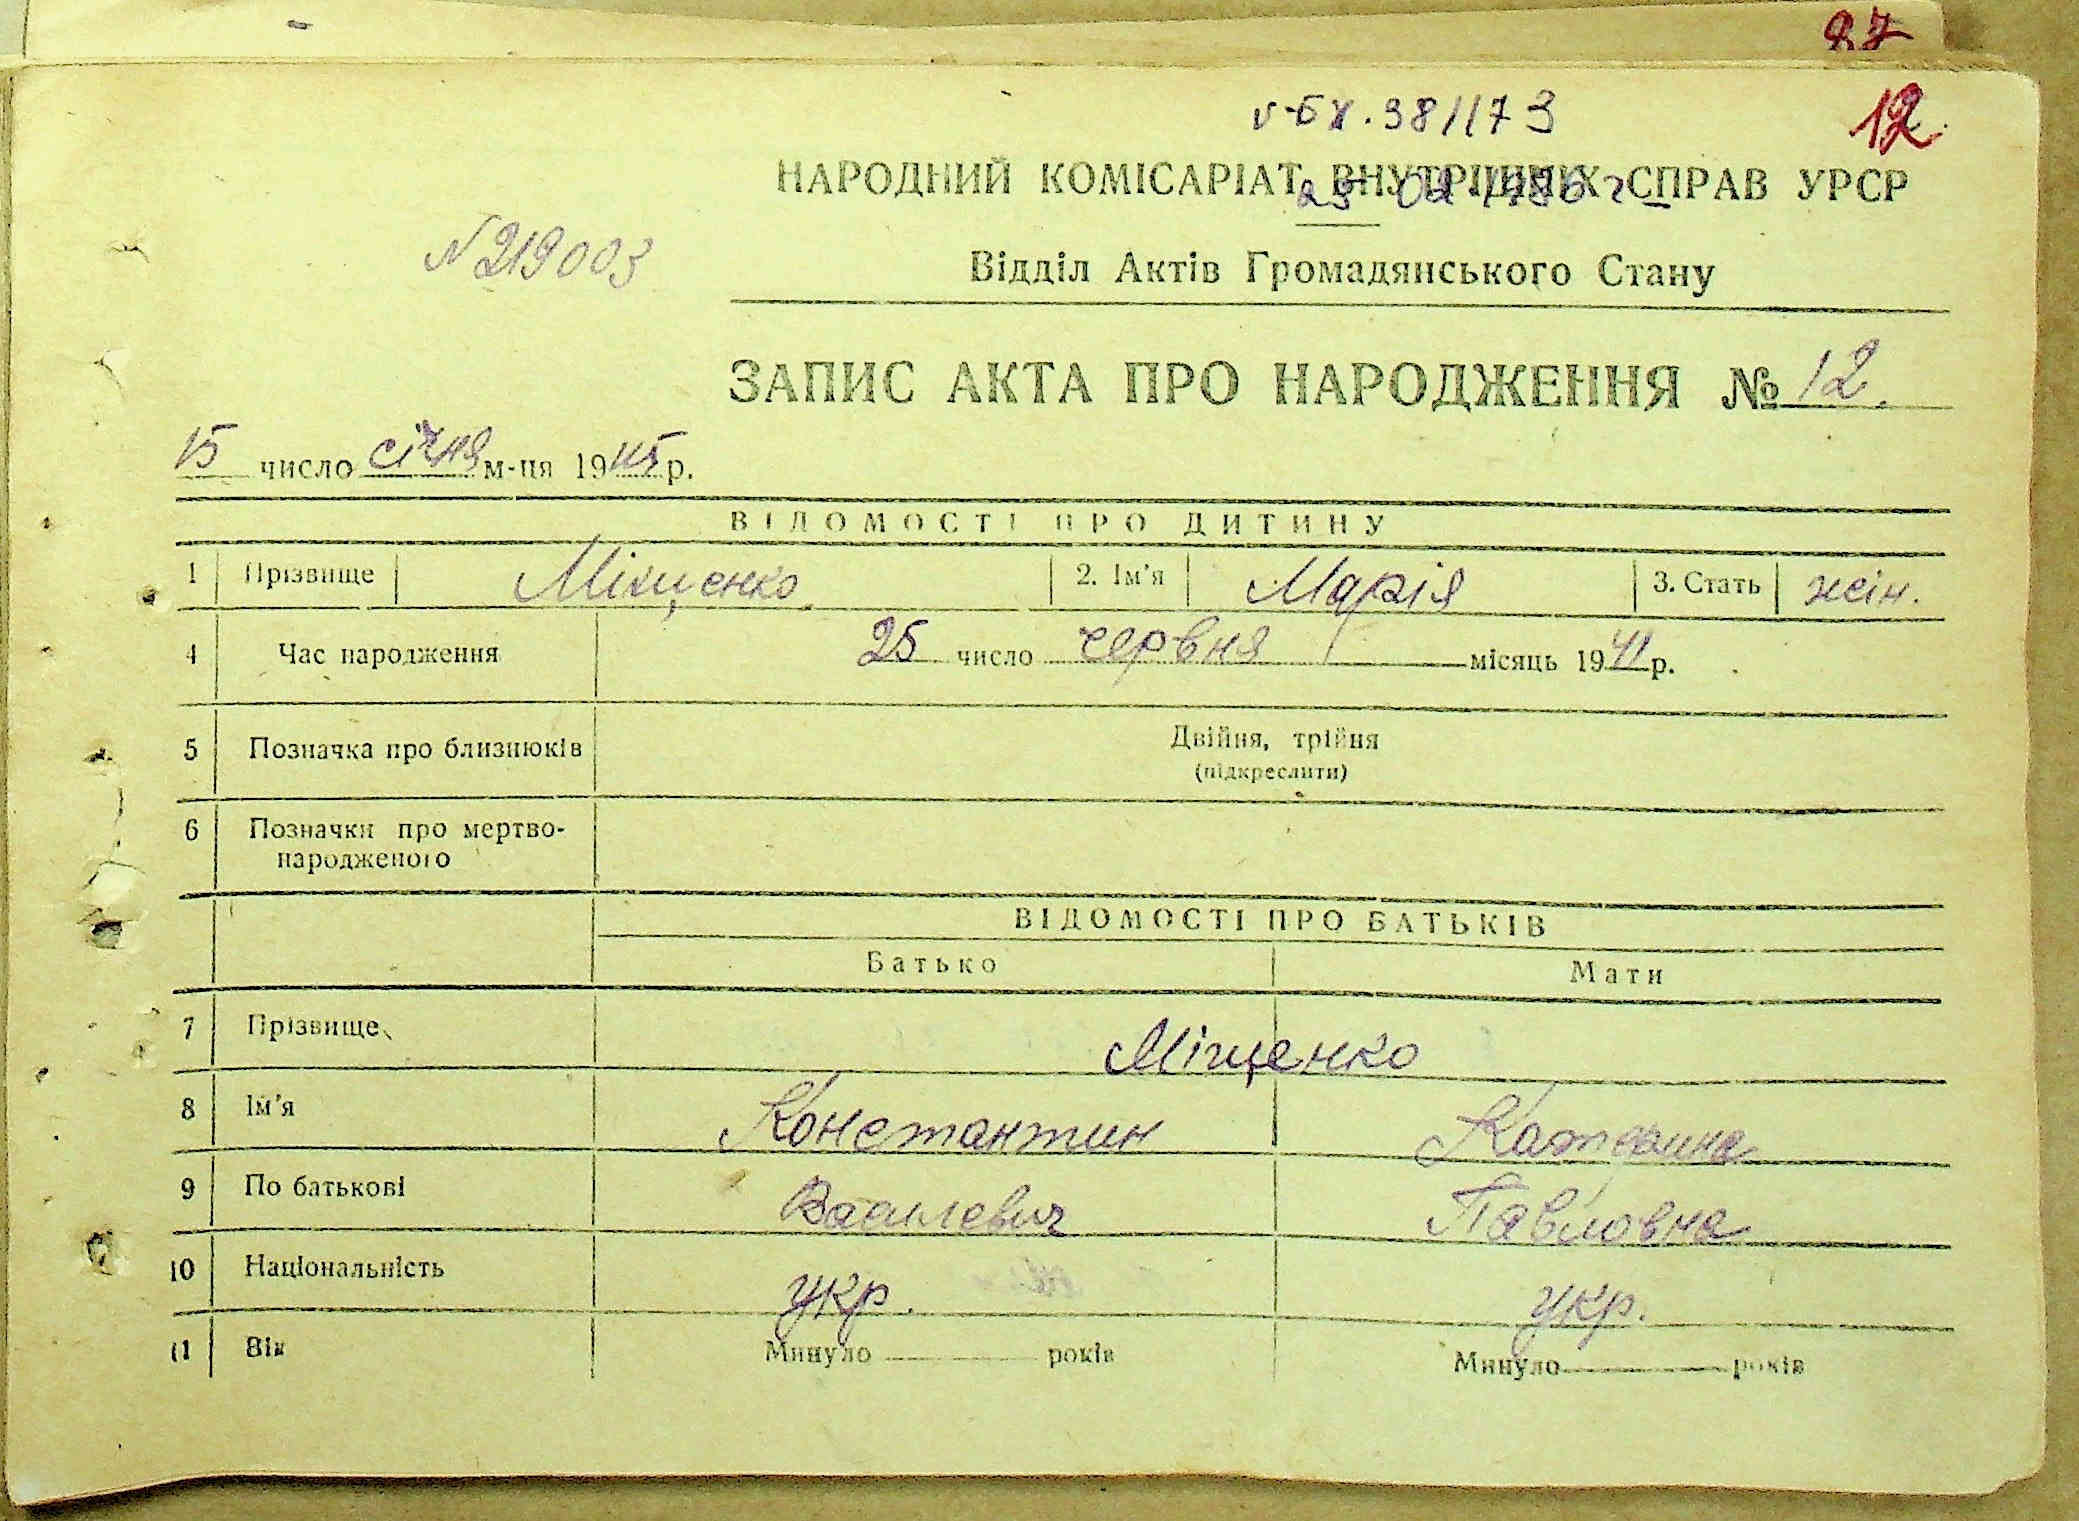 27
12
38/173
НАРОДНИЙ КОМІСАРІАТ ВНУТРІШНІХ СПРАВ УРСР
N 219003
Відділ Актів Громадянського Стану
ЗАПИС АКТА ПРО НАРОДЖЕННЯ № 12.
15 число січня м-ця 1945 р.
ВІДОМОСТІ ПРО ДИТИНУ
1 Прізвище Міщенко 2. Ім'я Марія 3. Стать жін.
4 Час народження 25 число червня місяць 1941 р.
5 Позначка про близнюків Двійня, трійня
(підкреслити)
6 Позначки про мертво-
народженого
ВІДОМОСТІ ПРО БАТЬКІВ
Батько Мати
7 Прізвище Міщенко
8 Ім'я Константин Катерина
9 По батькові Васильевич Павловна
10 Національність укр. укр.
11 Вік Минуло років Минуло років